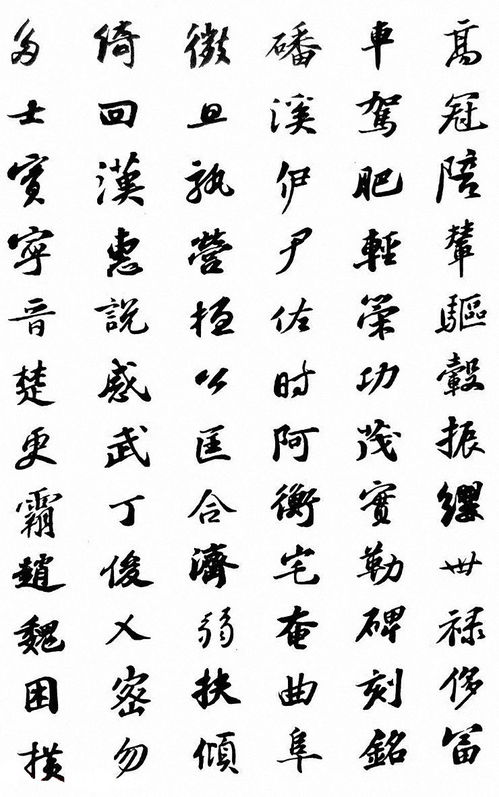 高冠陪輦驅轂振纓世禄侈富
車駕肥輕策功茂實勒碑刻銘
磻溪伊尹佐时阿衡宅奄曲阜
微旦孰營桓公匡合濟弱扶傾
綺回漢惠說感武丁俊乂密勿
多士寔寧晉楚更霸趙魏困橫